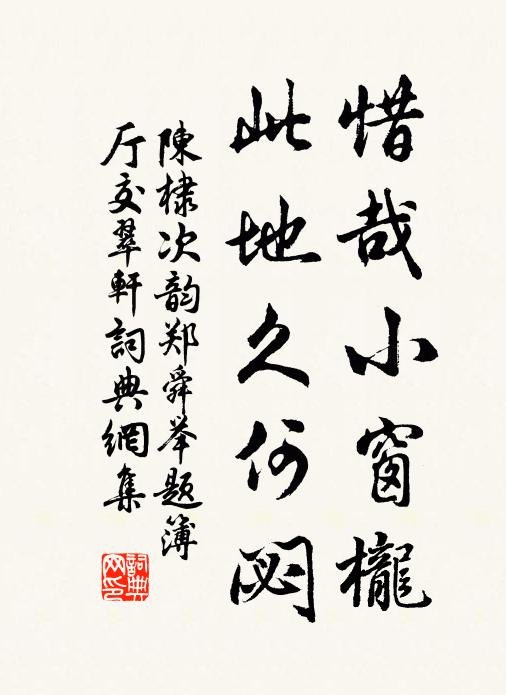 惜哉小窗櫳
此地久何閟
陳棣次韵郑舜举题簿
厅交翠軒詞典網集
詞典
网印